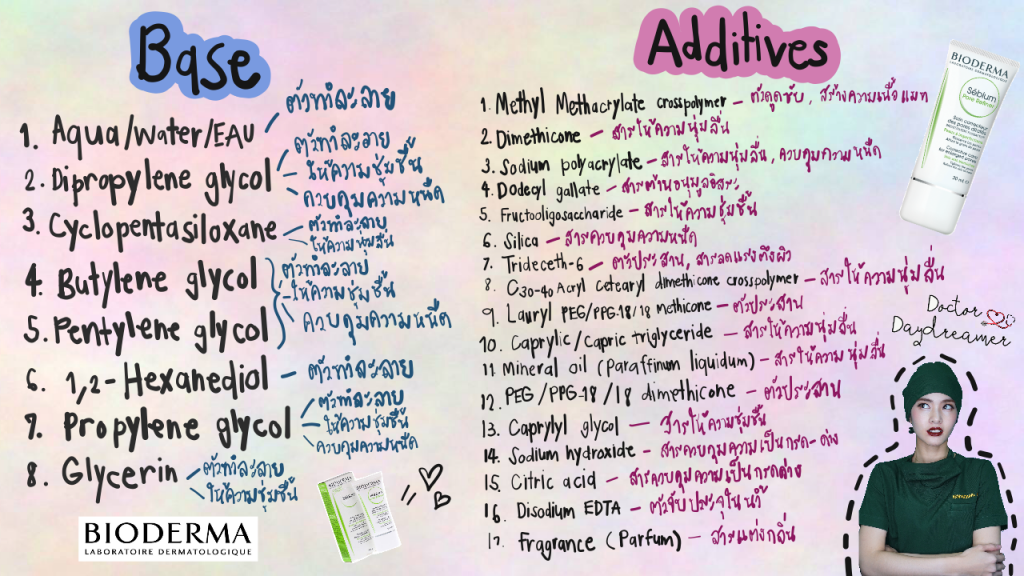 Base
1. Aqua/Water/EAU
ตัวทำละลาย
2. Dipropylene glycol
ตัวทำละลาย
ให้ความชุ่มชื้น
ควบคุมความหนืด
3. Cyclopentasiloxane
ตัวทำละลาย
ให้ความนุ่มลื่น
4. Butylene glycol
5. Pentylene glycol
ตัวทำละลาย
ให้ความชุ่มชื้น
ควบคุมความหนืด
6. 1,2-Hexanediol – ตัวทำละลาย
7. Propylene glycol
ตัวทำละลาย
ให้ความชุ่มชื้น
ควบคุมความหนืด
8. Glycerin
ตัวทำละลาย
ให้ความชุ่มชื้น
BIODERMA
LABORATOIRE DERMATOLOGIQUE
Additives
1. Methyl Methacrylate crosspolymer – ตัวดูดซับ, สร้างความเนื้อแมท
2. Dimethicone – สารให้ความนุ่มลื่น
3. Sodium polyacrylate – สารให้ความนุ่มลื่น, ควบคุมความหนืด
4. Dodecyl gallate – สารต้านอนุมูลอิสระ
5. Fructooligosaccharide – สารให้ความชุ่มชื้น
6. Silica – สารควบคุมความหนืด
7. Trideceth-6 – ตัวประสาน, สารลดแรงตึงผิว
8. C30-40 Acryl cetearyl dimethicone crosspolymer – สารให้ความนุ่มลื่น
9. Lauryl PEG/PPG-18/18 methicone – ตัวประสาน
10. Caprylic/capric triglyceride – สารให้ความนุ่มลื่น
11. Mineral oil (Paraffinum liquidum) – สารให้ความนุ่มลื่น
12. PEG/PPG-18/18 dimethicone – ตัวประสาน
13. Caprylyl glycol – สารให้ความชุ่มชื้น
14. Sodium hydroxide – สารควบคุมความเป็นกรด-ด่าง
15. Citric acid – สารควบคุมความเป็นกรดด่าง
16. Disodium EDTA – ตัวจับประจุในน้ำ
17. Fragrance (Parfum) – สารแต่งกลิ่น
BIODERMA
LABORATOIRE DERMATOLOGIQUE
Sébium
Pore Refiner
Doctor
Daydreamer